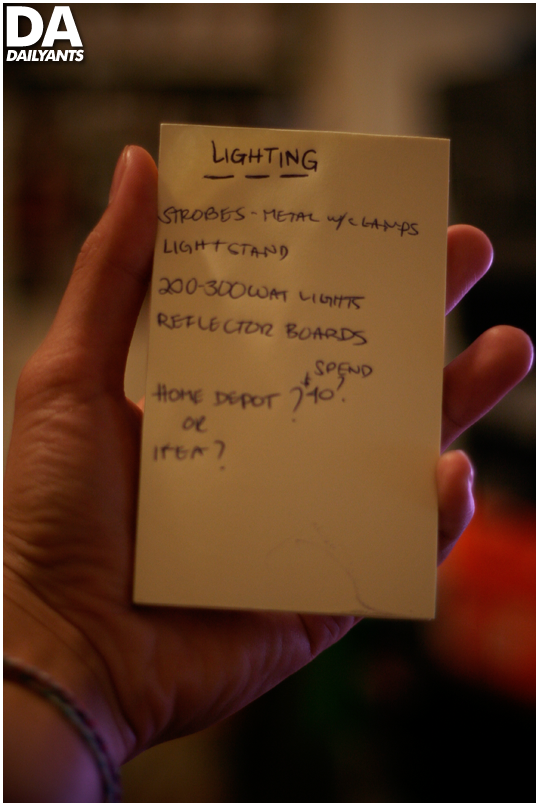 DA
DAILYANTS
LIGHTING
STROBES - METAL w/CLAMPS
LIGHTSTAND
200-300WAT LIGHTS
REFLECTOR BOARDS
SPEND
HOME DEPOT ? $40?
OR
IKEA?